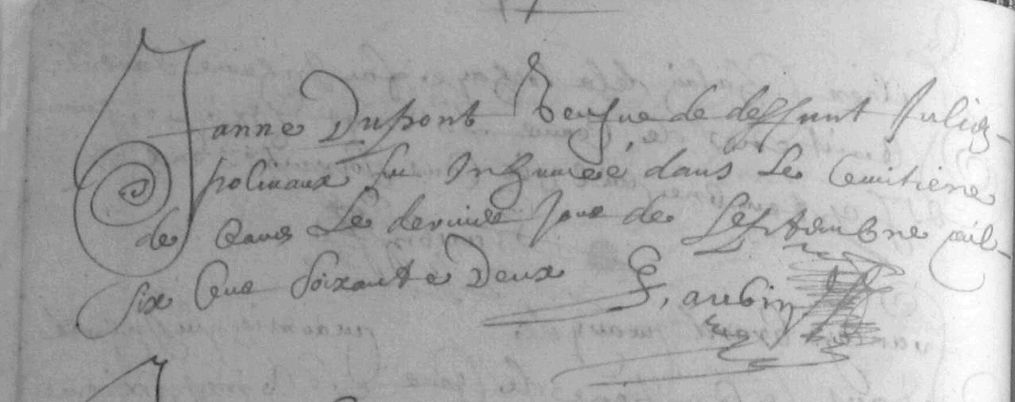 Janne Dupont Veufue de deffunt Julien
polinaux fu Inhumée dans Le Cemitiere
de Ceans Le dernier Jour de Septembre mil
six Cens soixante Deux G. aubin